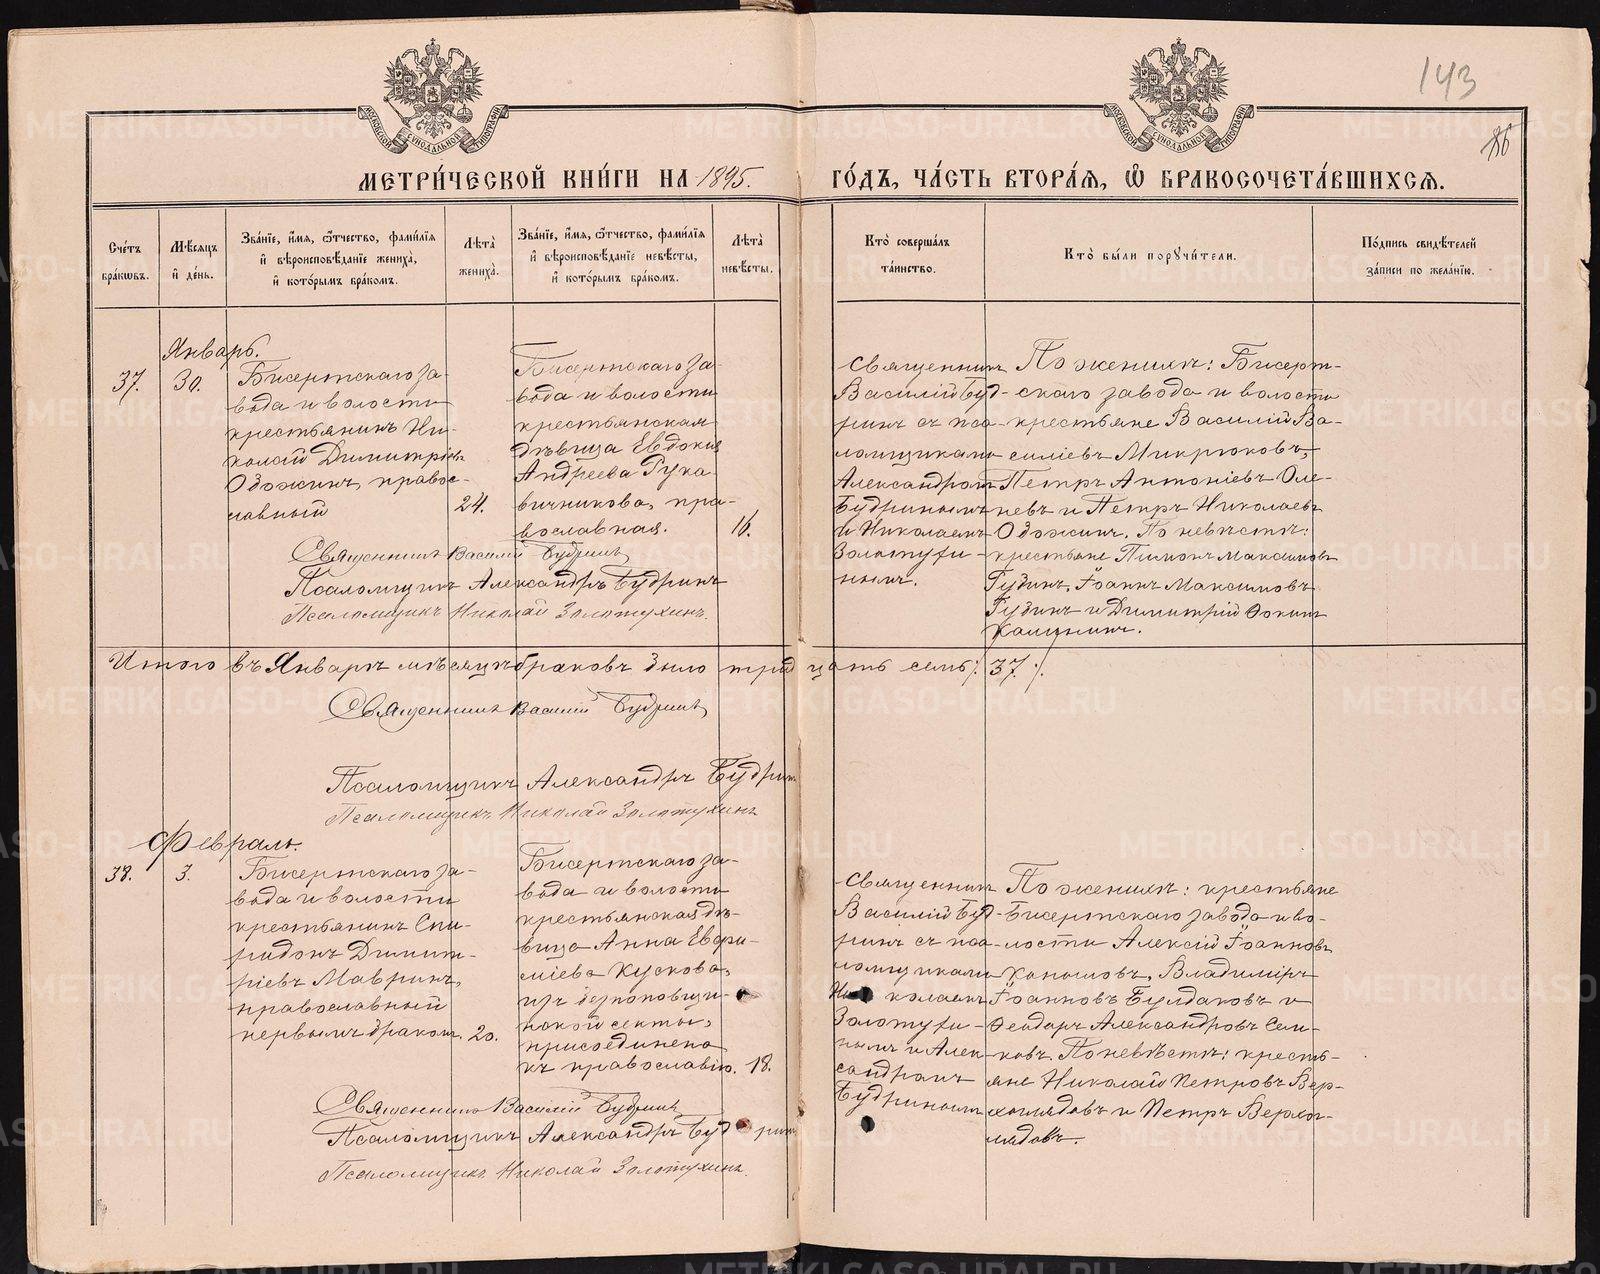 143
186
МЕТРИ́ЧЕСКОЙ КНИ́ГИ НА 1895. ГО́ДЪ, ЧА́СТЬ ВТОРА́Я, Ѿ БРАКОСОЧЕТА́ВШИХСЯ.
Сче́тъ
бра́ковъ.
Мѣ́сяцъ
и҆ де́нь.
Зва́нїе, и҆́мя, ѻ҆́тчество, фами́лїя
и҆ вѣроисповѣ́данїе жениха̀,
и҆ кото́рымъ бра́комъ.
Лѣта̀
жениха̀.
Зва́нїе, и҆́мя, ѻ҆́тчество, фами́лїя
и҆ вѣроисповѣ́данїе невѣ́сты,
и҆ кото́рымъ бра́комъ.
Лѣта̀
невѣ́сты.
Кто̀ соверша́лъ
та́инство.
Кто̀ бы́ли поручи́тели.
По́дпись свидѣ́телей
за́писи по жела́нїю.
Январь.
37.
30.
Бисертскаго за-
вода и волости
крестьянинъ Ни-
колай Димитріевъ
Одожинъ, правос-
лавный
24.
Бисертскаго за-
вода и волости
крестьянская
дѣвица Евдокия
Андреева Рука-
вичникова, пра-
вославная.
16.
Священникъ
Василій Буд-
ринъ съ пса-
ломщиками
Александромъ
Будринымъ
и Николаемъ
Золотухи-
нымъ.
По женихѣ: Бисерт-
скаго завода и волости
крестьяне Василій Ва-
силіевъ Микрюковъ,
Петръ Антоніевъ Оле-
невъ и Петръ Николаевъ
Одожинъ. По невѣстѣ:
крестьяне Пименъ Максимовъ
Гудинъ, Іоаннъ Максимовъ
Гудинъ и Димитрій
Калининъ.
Священникъ Василій Будринъ
Псаломщикъ Александръ Будринъ
Псаломщикъ Николай Золотухинъ.
Итого въ Январѣ мѣсяцѣ браковъ было тридцать семь /: 37 :/.
Священникъ Василій Будринъ
Псаломщикъ Александръ Будринъ
Псаломщикъ Николай Золотухинъ
Февраль.
38.
3.
Бисертскаго за-
вода и волости
крестьянинъ Спи-
ридонъ Димит-
ріевъ Мавринъ,
православный
первымъ бракомъ.
20.
Бисертскаго за-
вода и волости
крестьянская дѣ-
вица Анна Евфи-
міева Кускова,
изъ безпоповщи-
нской секты,
присоединена
къ православію.
18.
Священникъ
Василій Буд-
ринъ съ пса-
ломщиками
Николаемъ
Золотухи-
нымъ и Алек-
сандромъ
Будринымъ
По женихѣ: крестьяне
Бисертскаго завода и во-
лости Алексій Іоанновъ
Коношовъ, Владиміръ
Іоанновъ Булдаковъ и
Феодоръ Александровъ Сем-
ковъ. По невѣстѣ: кресть-
яне Николай Петровъ Вер-
холядовъ и Петръ Верхо-
лядовъ.
Священникъ Василій Будринъ
Псаломщикъ Александръ Будринъ
Псаломщикъ Николай Золотухинъ.
METRIKI.GASO-URAL.RU